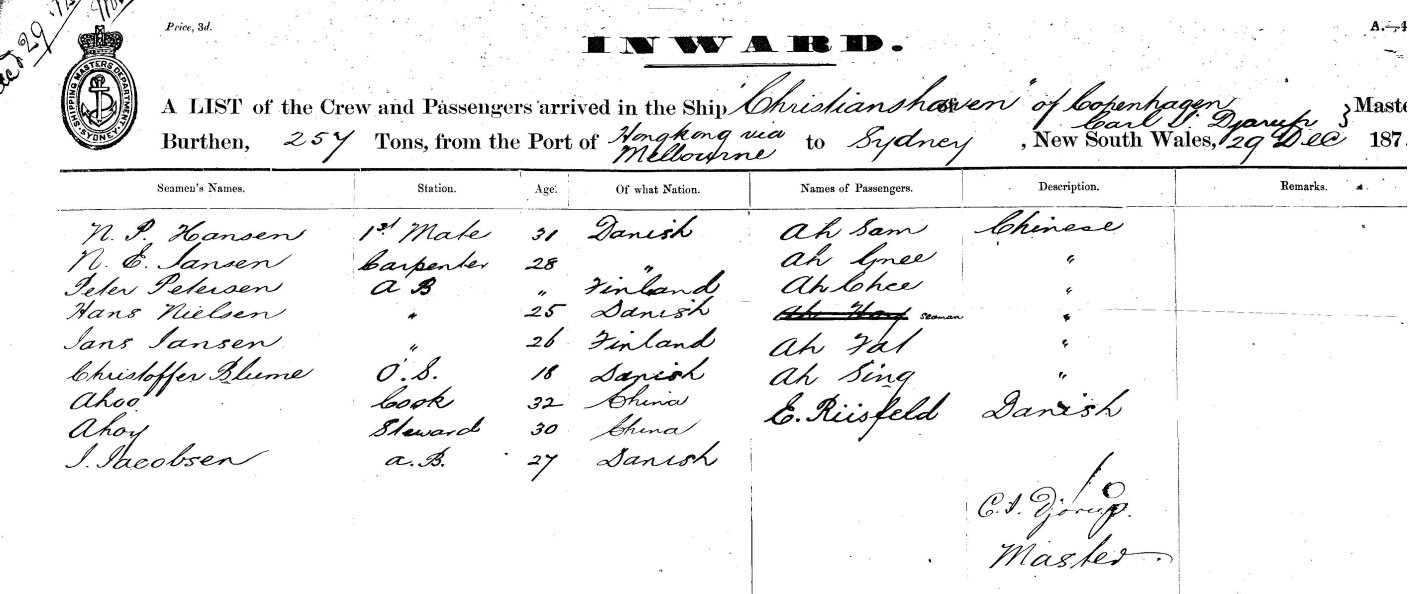 Price, 3d.
A.—4
INWARD.
SHIPPING MASTERS DEPARTMENT
SYDNEY
A LIST of the Crew and Passengers arrived in the Ship "Christianshaven" of Copenhagen
Carl Djorup } Maste
Burthen, 257 Tons, from the Port of Hongkong via Melbourne to Sydney, New South Wales, 29 Dec 187
Seamen's Names. Station. Age. Of what Nation. Names of Passengers. Description. Remarks.
N. P. Hansen 1st Mate 31 Danish Ah Sam Chinese
N. E. Jansen Carpenter 28 " Ah Gnee "
Peter Petersen A B " Finland Ah Chee "
Hans Nielsen " 25 Danish seaman "
Jans Jansen " 26 Finland Ah Fat "
Christoffer Blume O.S. 18 Danish Ah Sing "
Ahoo Cook 32 China E. Riisfeld Danish
Ahoy Steward 30 China
J. Jacobsen a.B. 27 Danish
C. J. Djorup.
Master